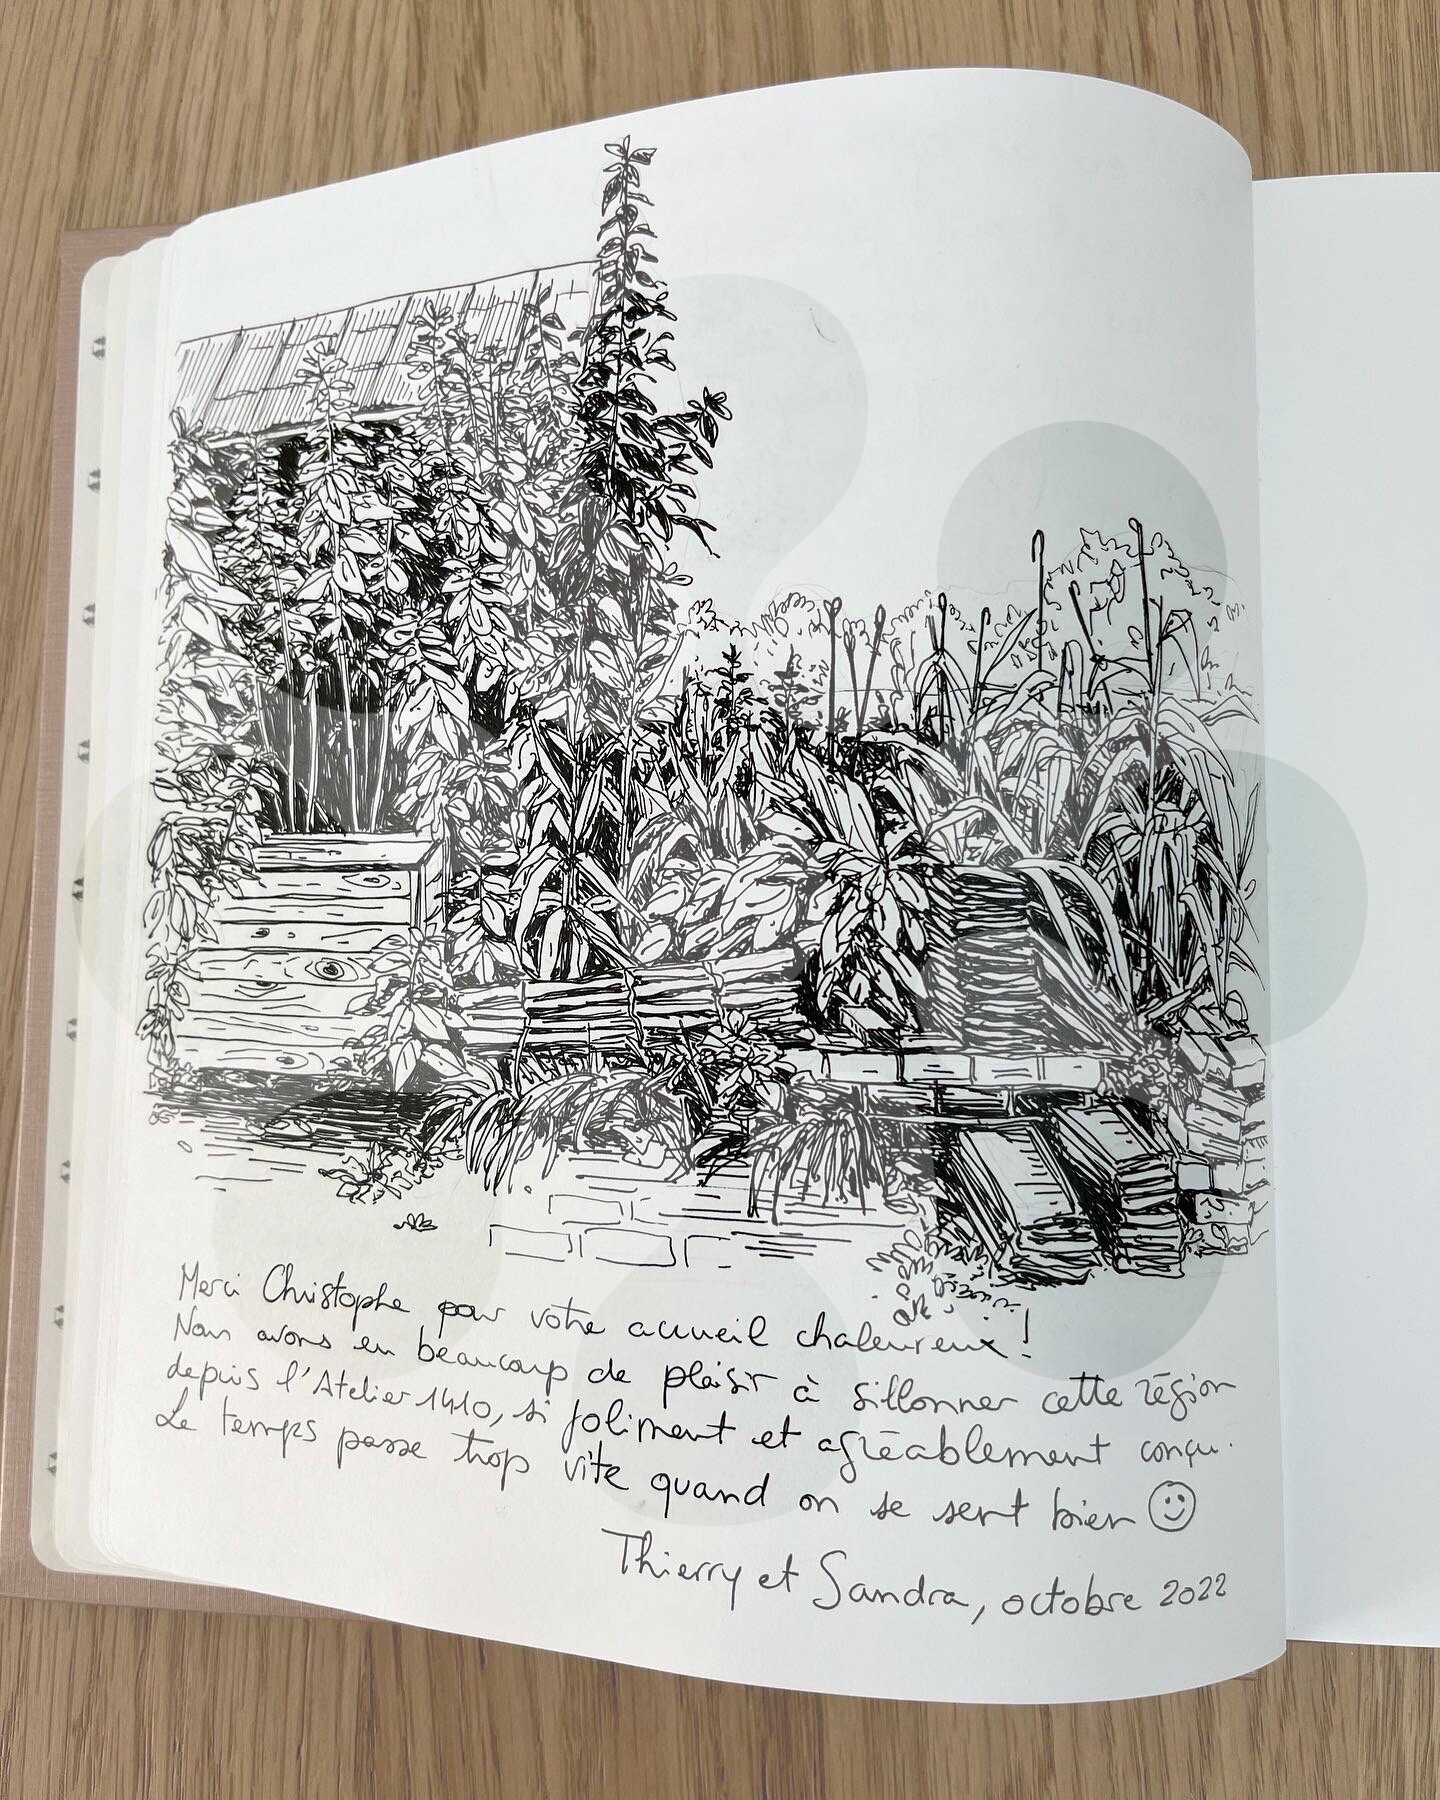 Merci Christophe pour votre accueil chaleureux !
Nous avons eu beaucoup de plaisir à sillonner cette région
depuis l'Atelier 1410, si joliment et agréablement conçu.
Le temps passe trop vite quand on se sent bien ☺
Thierry et Sandra, octobre 2022